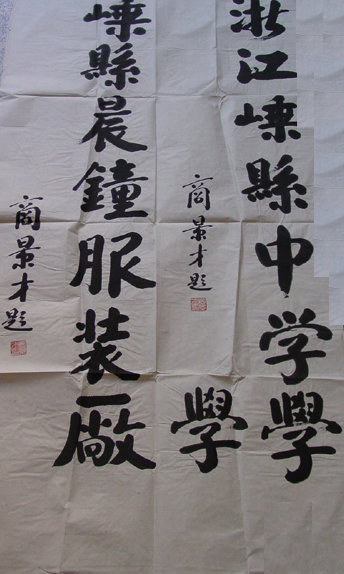 浙江嵊縣中学學
學
商景才題
嵊縣晨鐘服装廠
商景才題